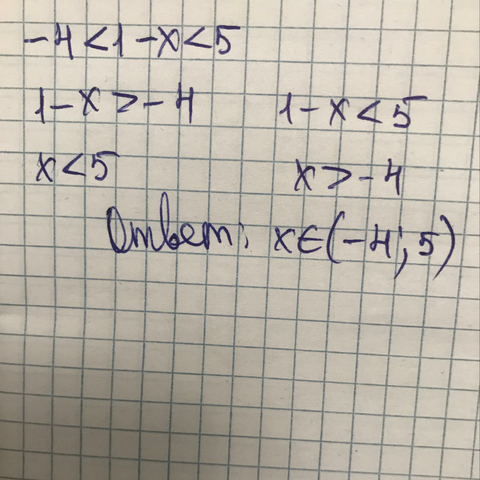 -4<1-x<5
1-x>-4 1-x<5
x<5 x>-4
Ответ: x∈(-4;5)